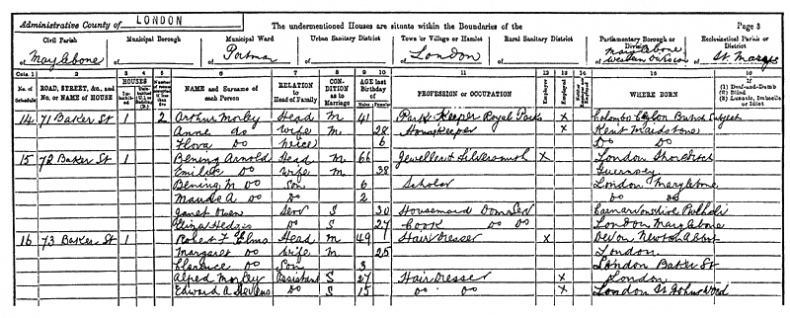 Administrative County of LONDON The undermentioned Houses are situate within the Boundaries of the Page 3
Civil Parish Municipal Borough Municipal Ward Urban Sanitary District Town or Village or Hamlet Rural Sanitary District Parliamentary Borough or Division Ecclesiastical Parish or District
of Marylebone of of Portman of of London of of Marylebone Western Division of St. Mary's
Cols. 1 2 3 4 5 6 7 8 9 10 11 12 13 14 15 16
No. of Schedule ROAD, STREET, &c., and No. or NAME of HOUSE HOUSES NAME and Surname of each Person RELATION to Head of Family CONDITION as to Marriage AGE last Birthday of PROFESSION or OCCUPATION Employer Employed WHERE BORN If
(1) Deaf-and-Dumb
(2) Blind
(3) Lunatic, Imbecile or Idiot
14 71 Baker St 1 2 Arthur Morley Head M 41 Park Keeper Royal Parks X Colombo Ceylon British Subject
Anne do Wife M 28 Housekeeper X Kent Maidstone
Flora Do Niece 6 Do Do
15 72 Baker St 1 Bening Arnold Head M 66 Jeweller & Silversmith X London Shoreditch
Emilie Do Wife M 38 Guernsey
Bening M Do Son 6 Scholar London Marylebone
Maude A Do D 2 Do Do
Janet Owen Serv S 20 Housemaid Dom Ser Caernarvonshire Pwllheli
Eliza Hedges Do S 27 Cook Do Do London Marylebone
16 73 Baker St 1 Robert F Elms Head M 49 Hair Dresser X Devon Newton Abbot
Margaret Do Wife M 25 London
Clarence Do Son 3 London Baker St
Alfred Morley Assistant S 27 Hair Dresser X London
Edward A Stevens Do S 15 Do Do X London St Johns Wood